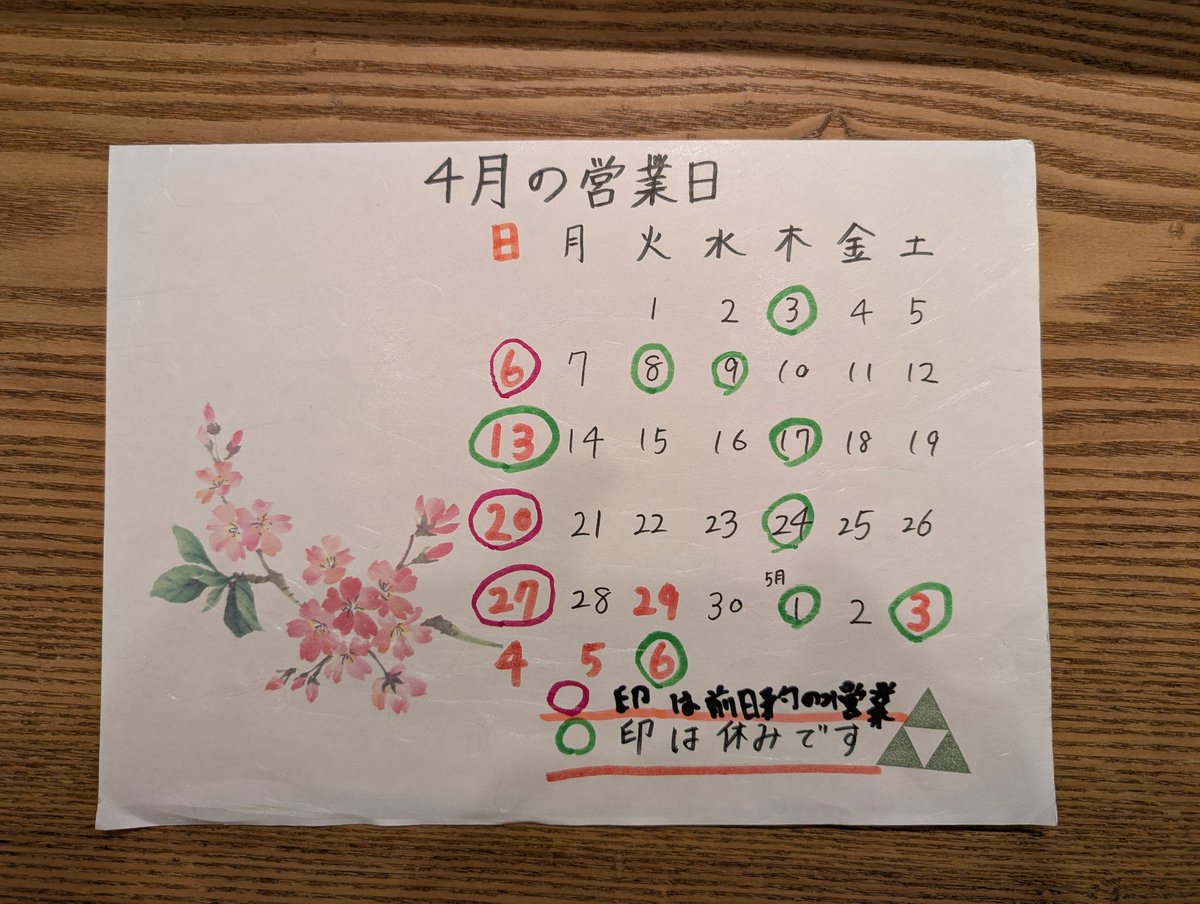 4月の営業日
日 月 火 水 木 金 土
1 2 3 4 5
6 7 8 9 10 11 12
13 14 15 16 17 18 19
20 21 22 23 24 25 26
27 28 29 30 5月 1 2 3
4 5 6
印は前日予約のみ営業
印は休みです